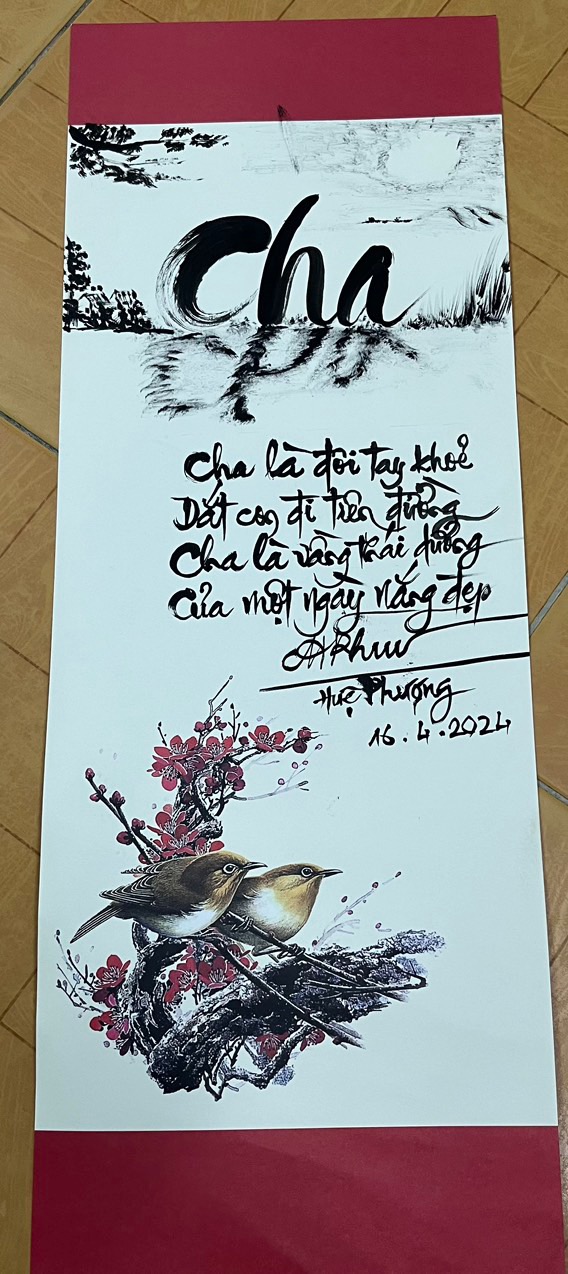 Cha
Cha là đôi tay khoẻ
Dắt con đi trên đường
Cha là vầng thái dương
Của một ngày nắng đẹp
Huệ Phượng
16.4.2024